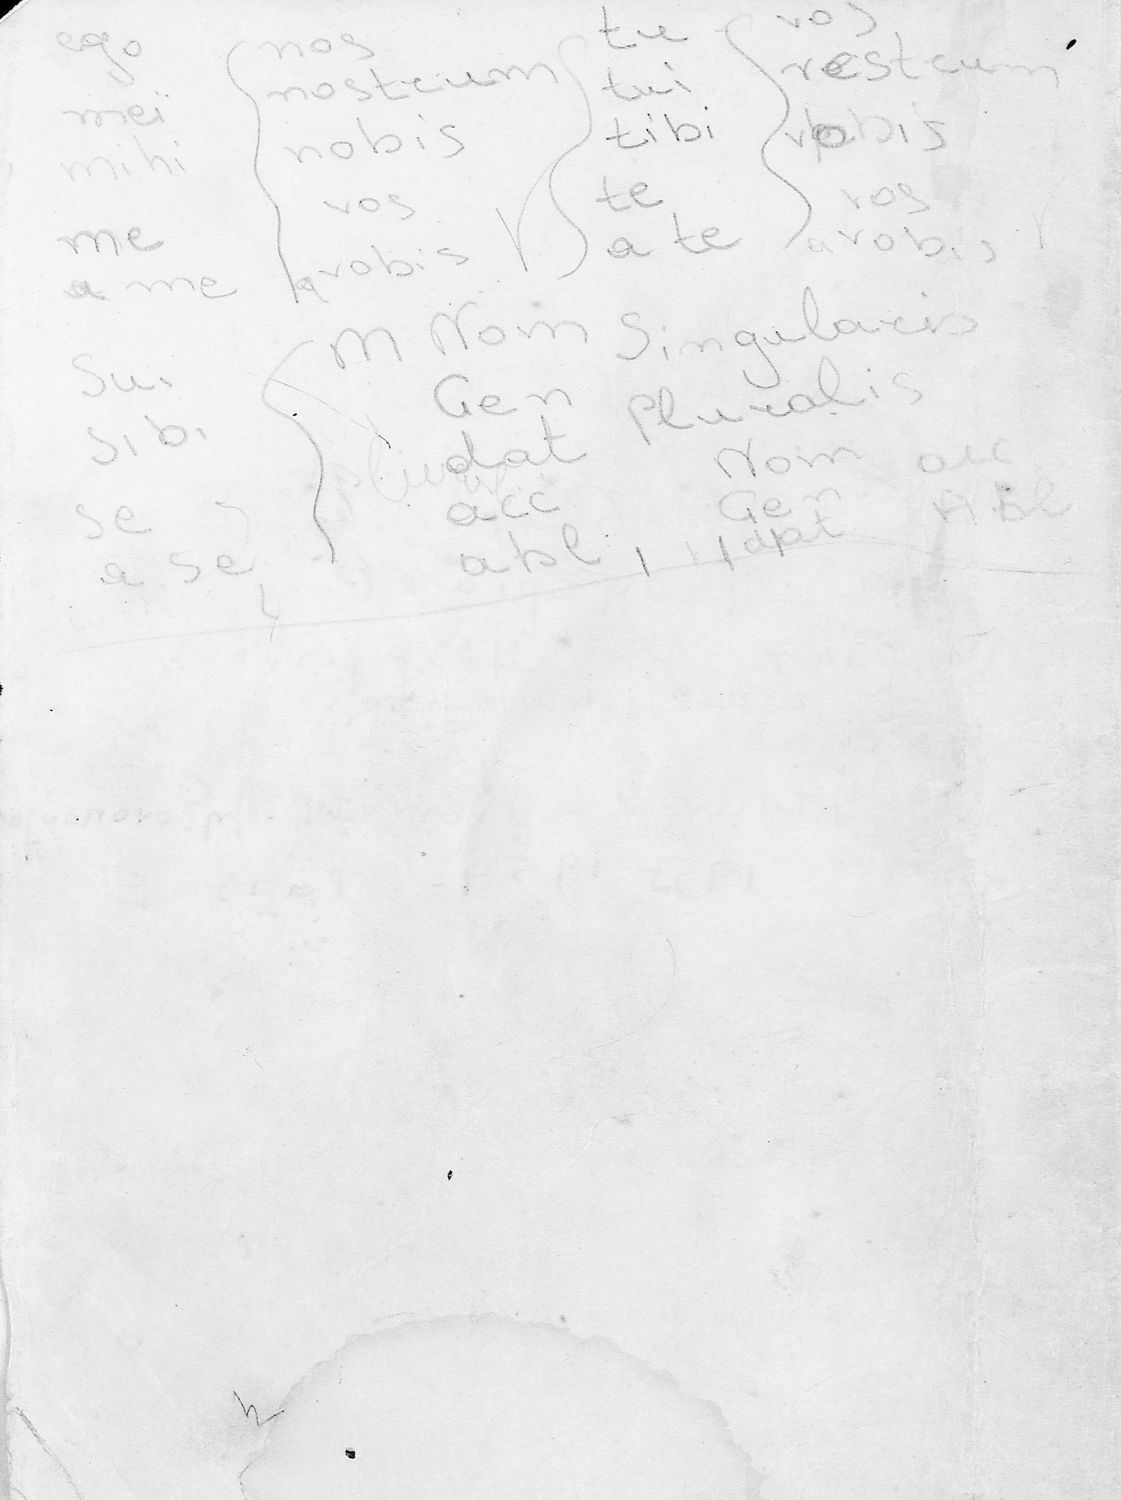 ego nos tu vos
mei nostrum tui vestrum
mihi nobis tibi vobis
me vos te vos
a me a vobis a te a vobis
Sui M Nom Singularis
Sibi Gen Pluralis
dat Nom acc
se acc Gen Abl
a se abl dat